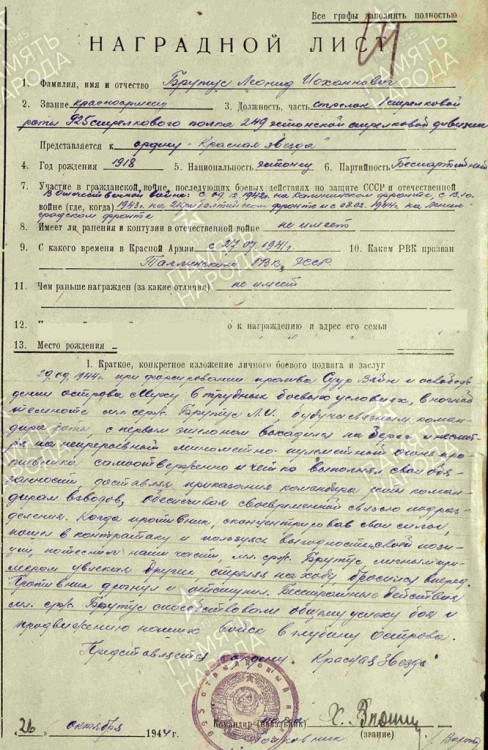 Все графы заполнять полностью
НАГРАДНОЙ ЛИСТ
1. Фамилия, имя и отчество Брутус Леонид Иоханнович
2. Звание красноармеец 3. Должность, часть стрелок 1 стрелковой
роты 925 стрелкового полка 249 эстонской стрелковой дивизии
Представляется к ордену "Красная звезда"
4. Год рождения 1918 5. Национальность эстонец 6. Партийность Беспартийный
7. Участие в гражданской войне, последующих боевых действиях по защите СССР и отечественной
В Отечественной войне: с 1942г. на Калининском фронте, с
войне (где, когда) 1943г. на 2 Прибалтийском фронте и с 08.02.1944г. на Ленин-
градском фронте
8. Имеет ли ранения и контузии в отечественной войне не имеет
9. С какого времени в Красной Армии с 27.07.1941г. 10. Каким РВК призван
Таллинским РВК, ЭССР
11. Чем раньше награжден (за какие отличия) не имеет
12. о к награждению и адрес его семьи
13. Место рождения
I. Краткое, конкретное изложение личного боевого подвига и заслуг
29.09.1944г. при форсировании пролива Суур Вяйн и освобож-
дении острова Муху в трудных боевых условиях, в ночной
темноте мл. серж. Брутус Л.И. будучи связным коман-
дира роты с первым эшелоном высадился на берег и несмот-
ря на непрерывный минометно-пулеметный огонь про-
тивника самоотверженно и четко выполнял свои обя-
занности, доставляя приказания командира роты коман-
дирам взводов, обеспечивая своевременной связью подраз-
деления. Когда противник, сконцентрировав свои силы,
пошел в контратаку и пользуясь выгодностью своей пози-
ции, потеснил наши части мл. серж. Брутус личным при-
мером увлекая других стреляя на ходу бросился вперед.
Противник дрогнул и отступил. Бесстрашные действия
мл. серж. Брутус способствовали общему успеху боя и
продвижению наших войск в глубину острова.
Представляется к ордену "Красная Звезда"
Командир (начальник)
26 октября 1944 г.
(звание)
ПАМЯТЬ
НАРОДА